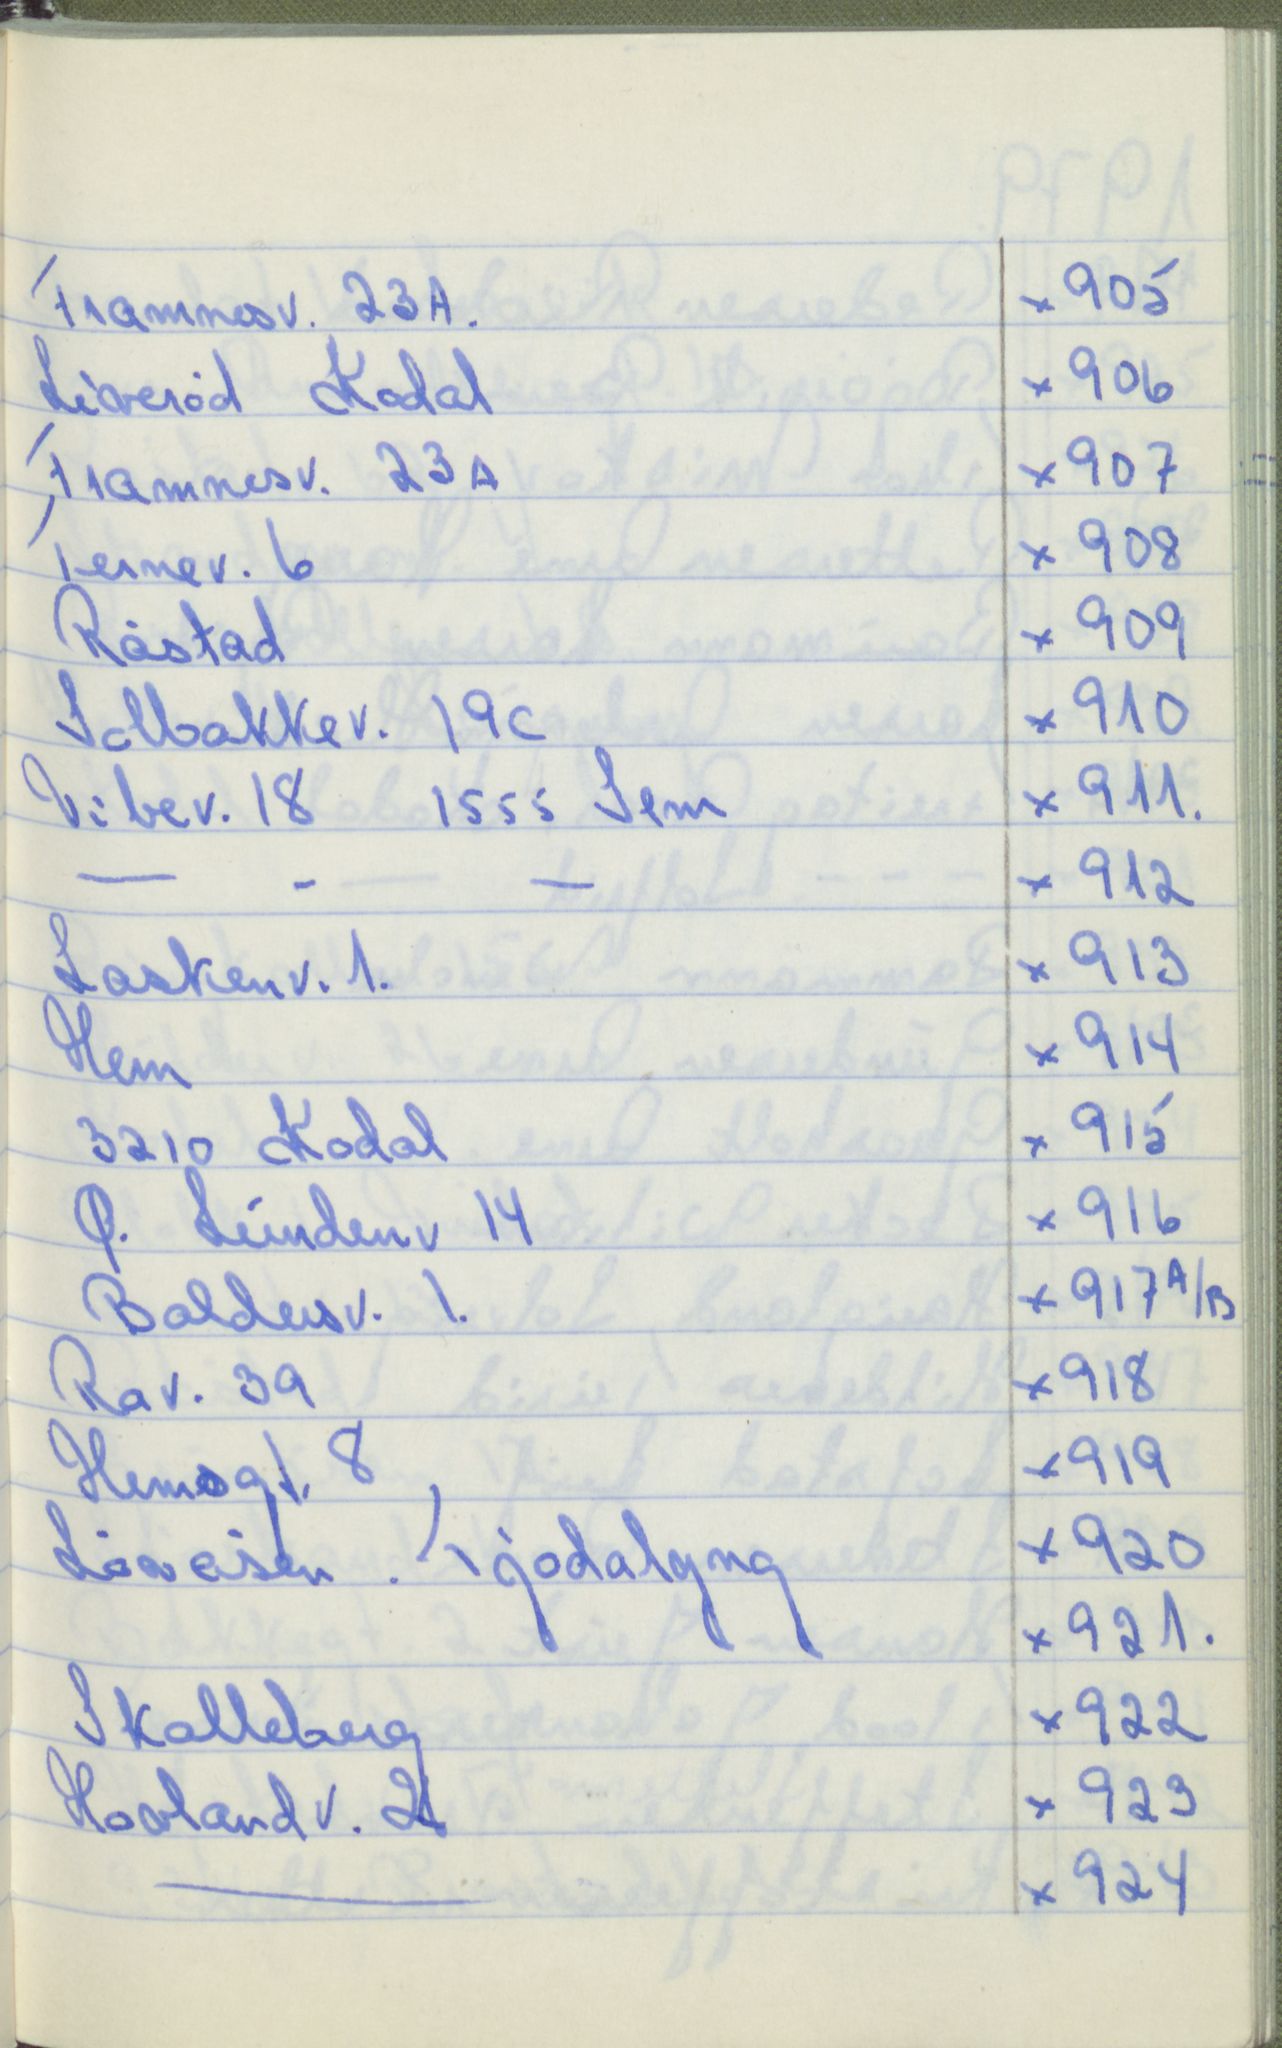 Framnesv. 23A. x 905
Liverød Kodal x 906
Framnesv. 23A x 907
Ternev. 6 x 908
Råstad x 909
Solbakkev. 19c x 910
Vibev. 18 1555 Sem x 911.
— - — x 912
Laskenv. 1. x 913
Hem x 914
3210 Kodal x 915
Ø. Lindenv 14 x 916
Baldersv. 1. x 917 A/B
Rav. 39 x 918
Hemsgt. 8 x 919
Gjødalyng x 920
x 921.
Skalleberg x 922
Hovlandv. 2 x 923
— x 924